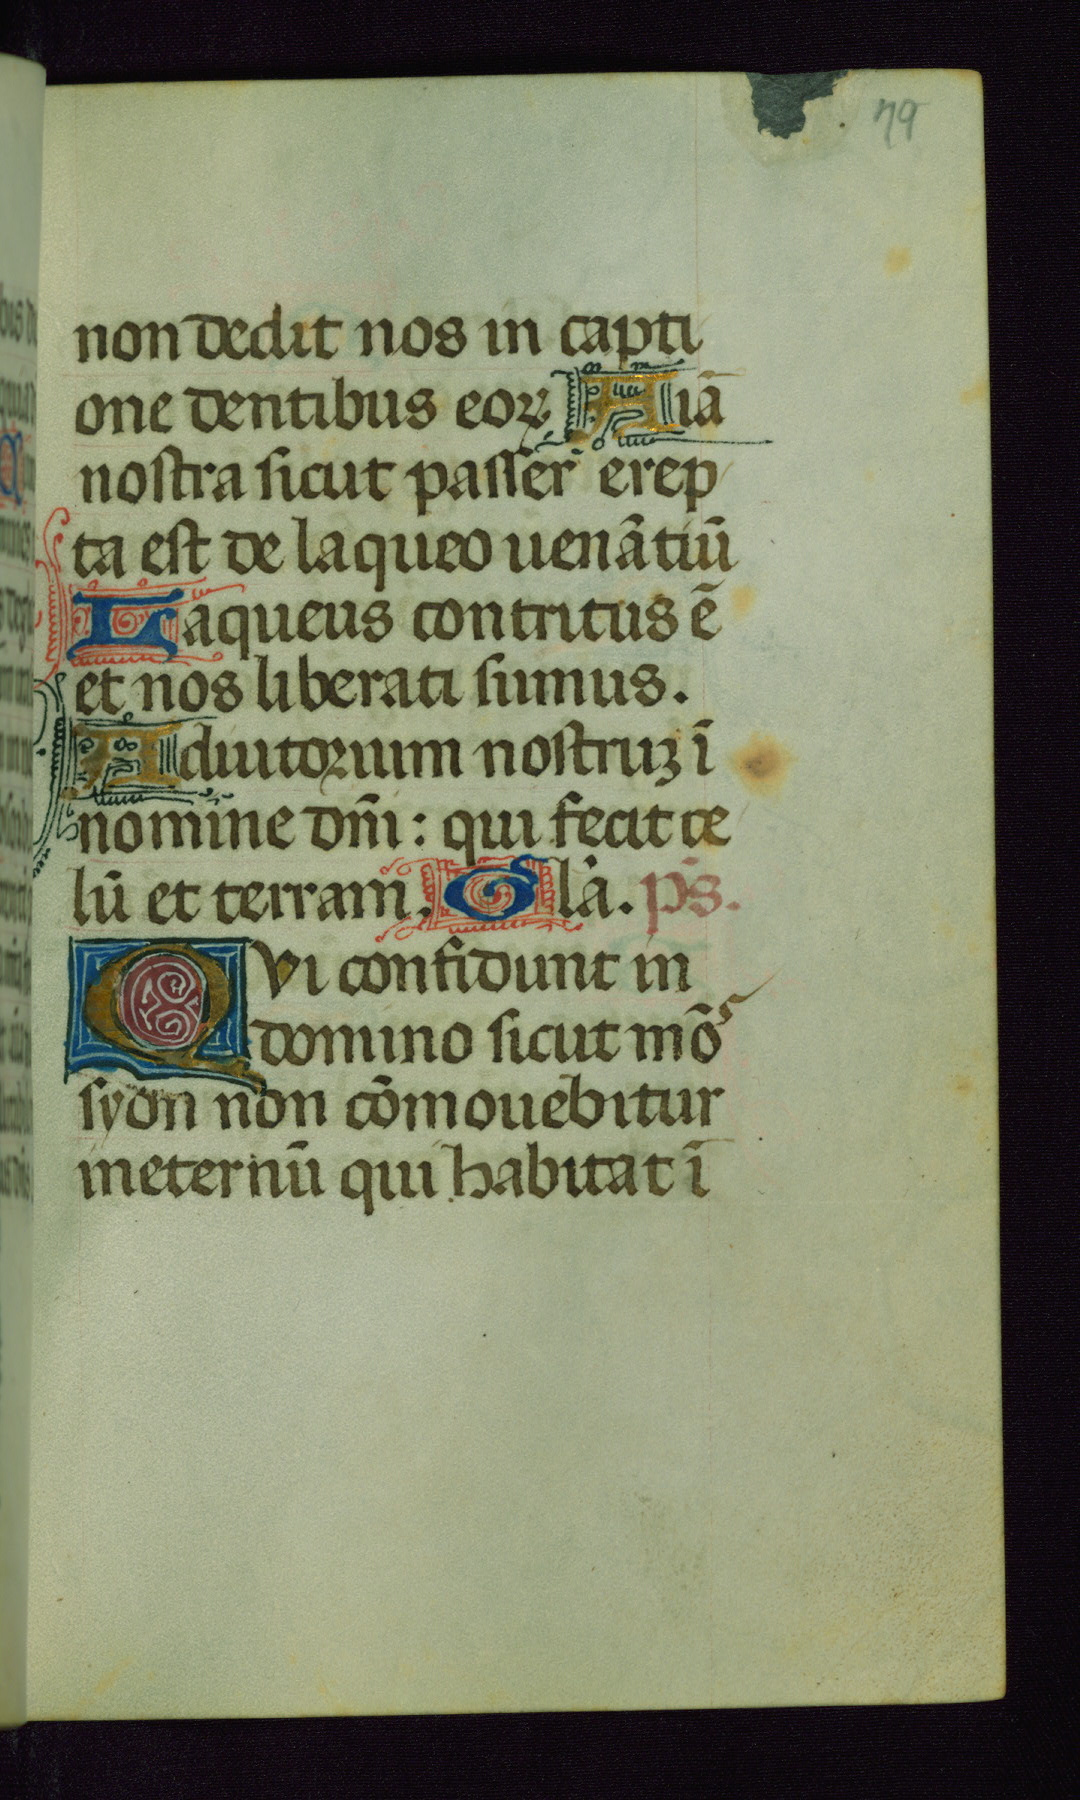 79
non dedit nos in capti
one dentibus eoꝝ Aīa
nostra sicut passer erep
ta est de laqueo uenātiū
Laqueus contritus ē
et nos liberati sumus.
Adiutorium nostruꝫ ī
nomine dn̄i: qui fecit ce
lū et terram. Gl̄a. ps̄.
Qvi confidunt in
domino sicut mōs
syon non cōmouebitur
ineternū qui habitat ī